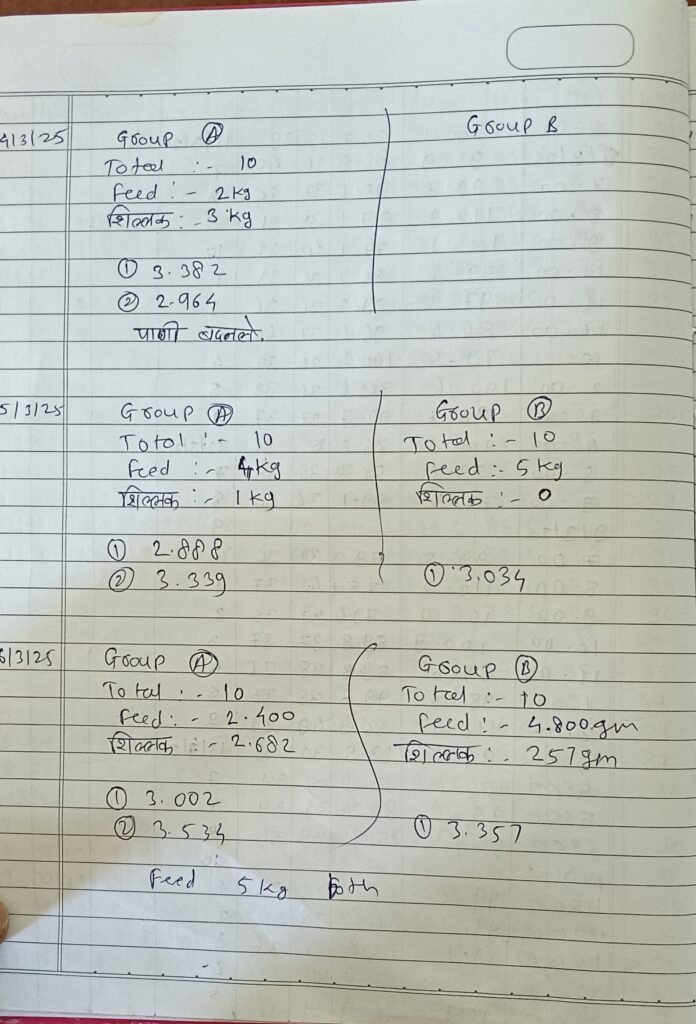 4/3/25
Group A
Total :- 10
Feed :- 2 kg
शिल्लक :- 3 kg
① 3.382
② 2.964
पाणी बदलले.
Group B
5/3/25
Group A
Total :- 10
Feed :- 4 kg
शिल्लक :- 1 kg
① 2.888
② 3.339
Group B
Total :- 10
Feed :- 5 kg
शिल्लक :- 0
① 3.034
6/3/25
Group A
Total :- 10
Feed :- 2.400
शिल्लक :- 2.682
① 3.002
② 3.534
Group B
Total :- 10
Feed :- 4.800 gm
शिल्लक :- 257 gm
① 3.357
Feed 5 kg Both